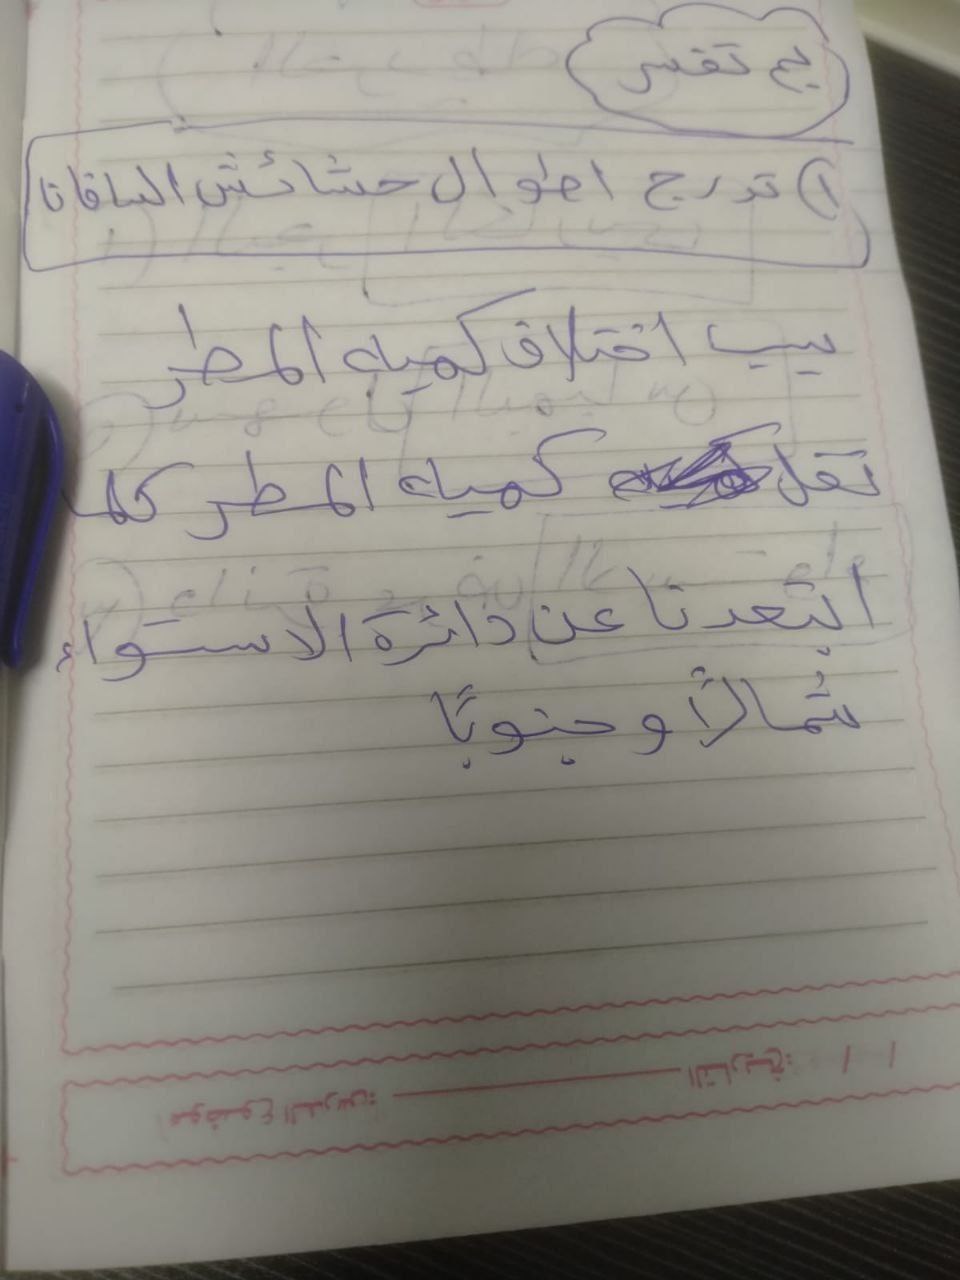 بم تفسر
① تدرج اطوال حشائش السافانا
بسبب اختلاف كميه المطر
تقل كميه المطر كلما
ابتعدنا عن دائرة الاستواء
شمالاً وجنوبًا
موضوع الدرس: التاريخ: / /